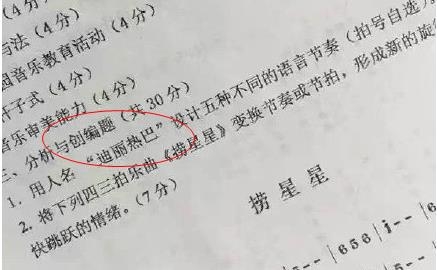 (4分)
与法(4分)
园音乐教育活动(4分)
杆子式(4分)
音乐审美能力(4分)
三、分析与创编题(共30分)
1. 用人名“迪丽热巴”设计五种不同的语言节奏(拍号自选)。
2. 将下列四三拍乐曲《捞星星》变换节奏或节拍,形成新的旋
快跳跃的情绪。(7分)
捞星星
| 6 5 6 | i - - |